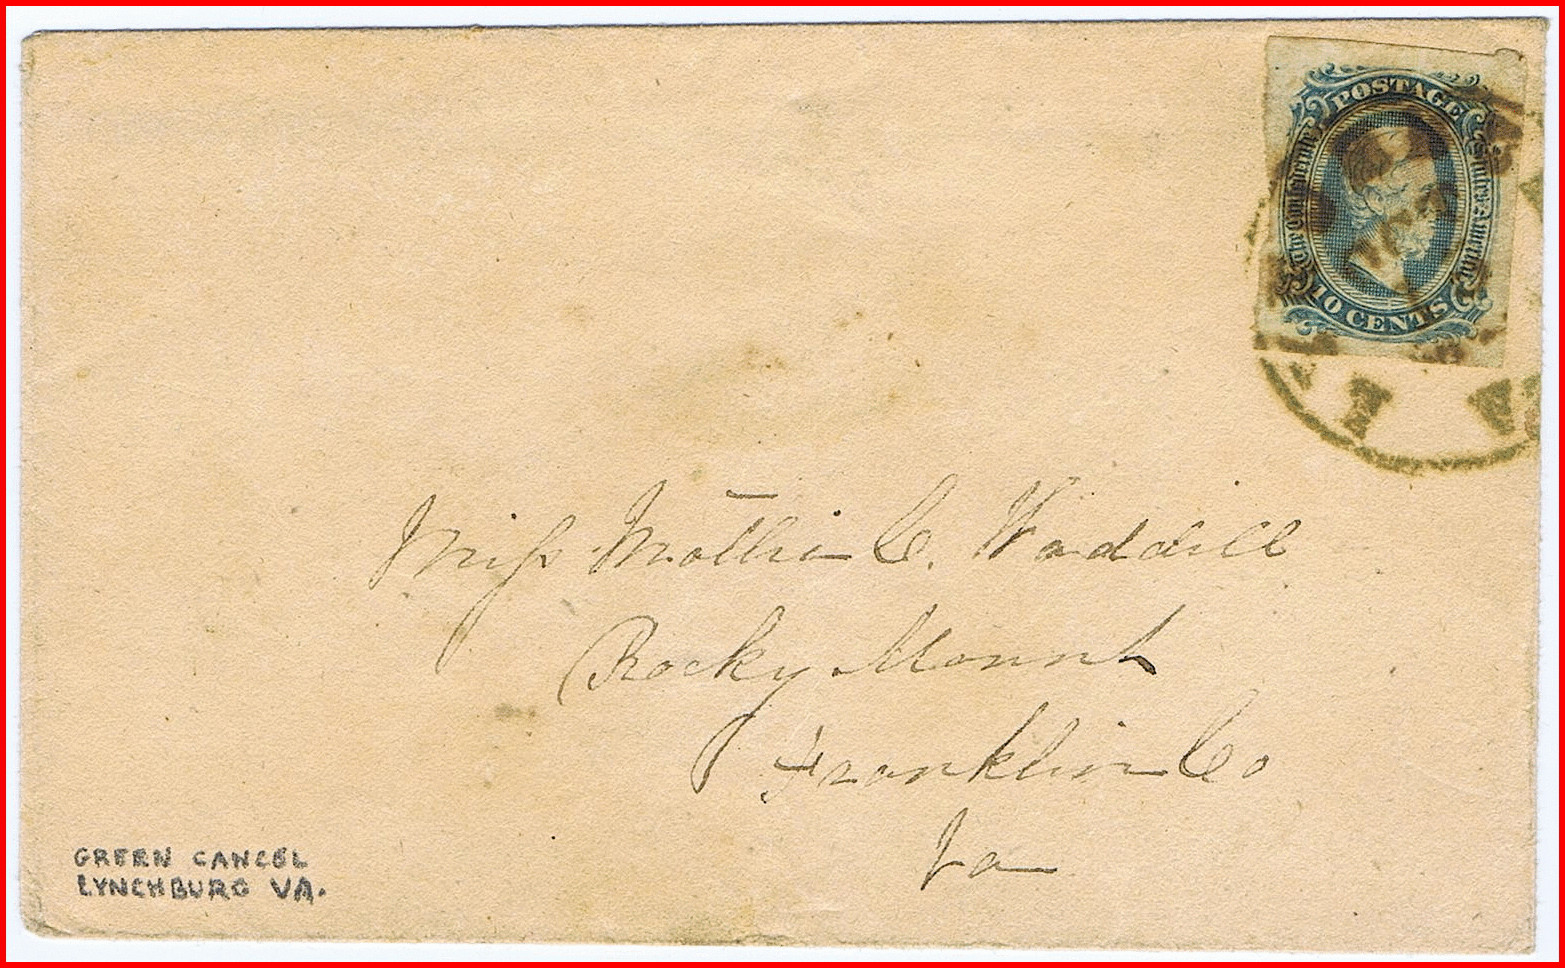 POSTAGE
The Confederate States of America
10 CENTS
Miss Mollie C. Waddill
Rocky Mount
Franklin Co
Va
GREEN CANCEL
LYNCHBURG VA.